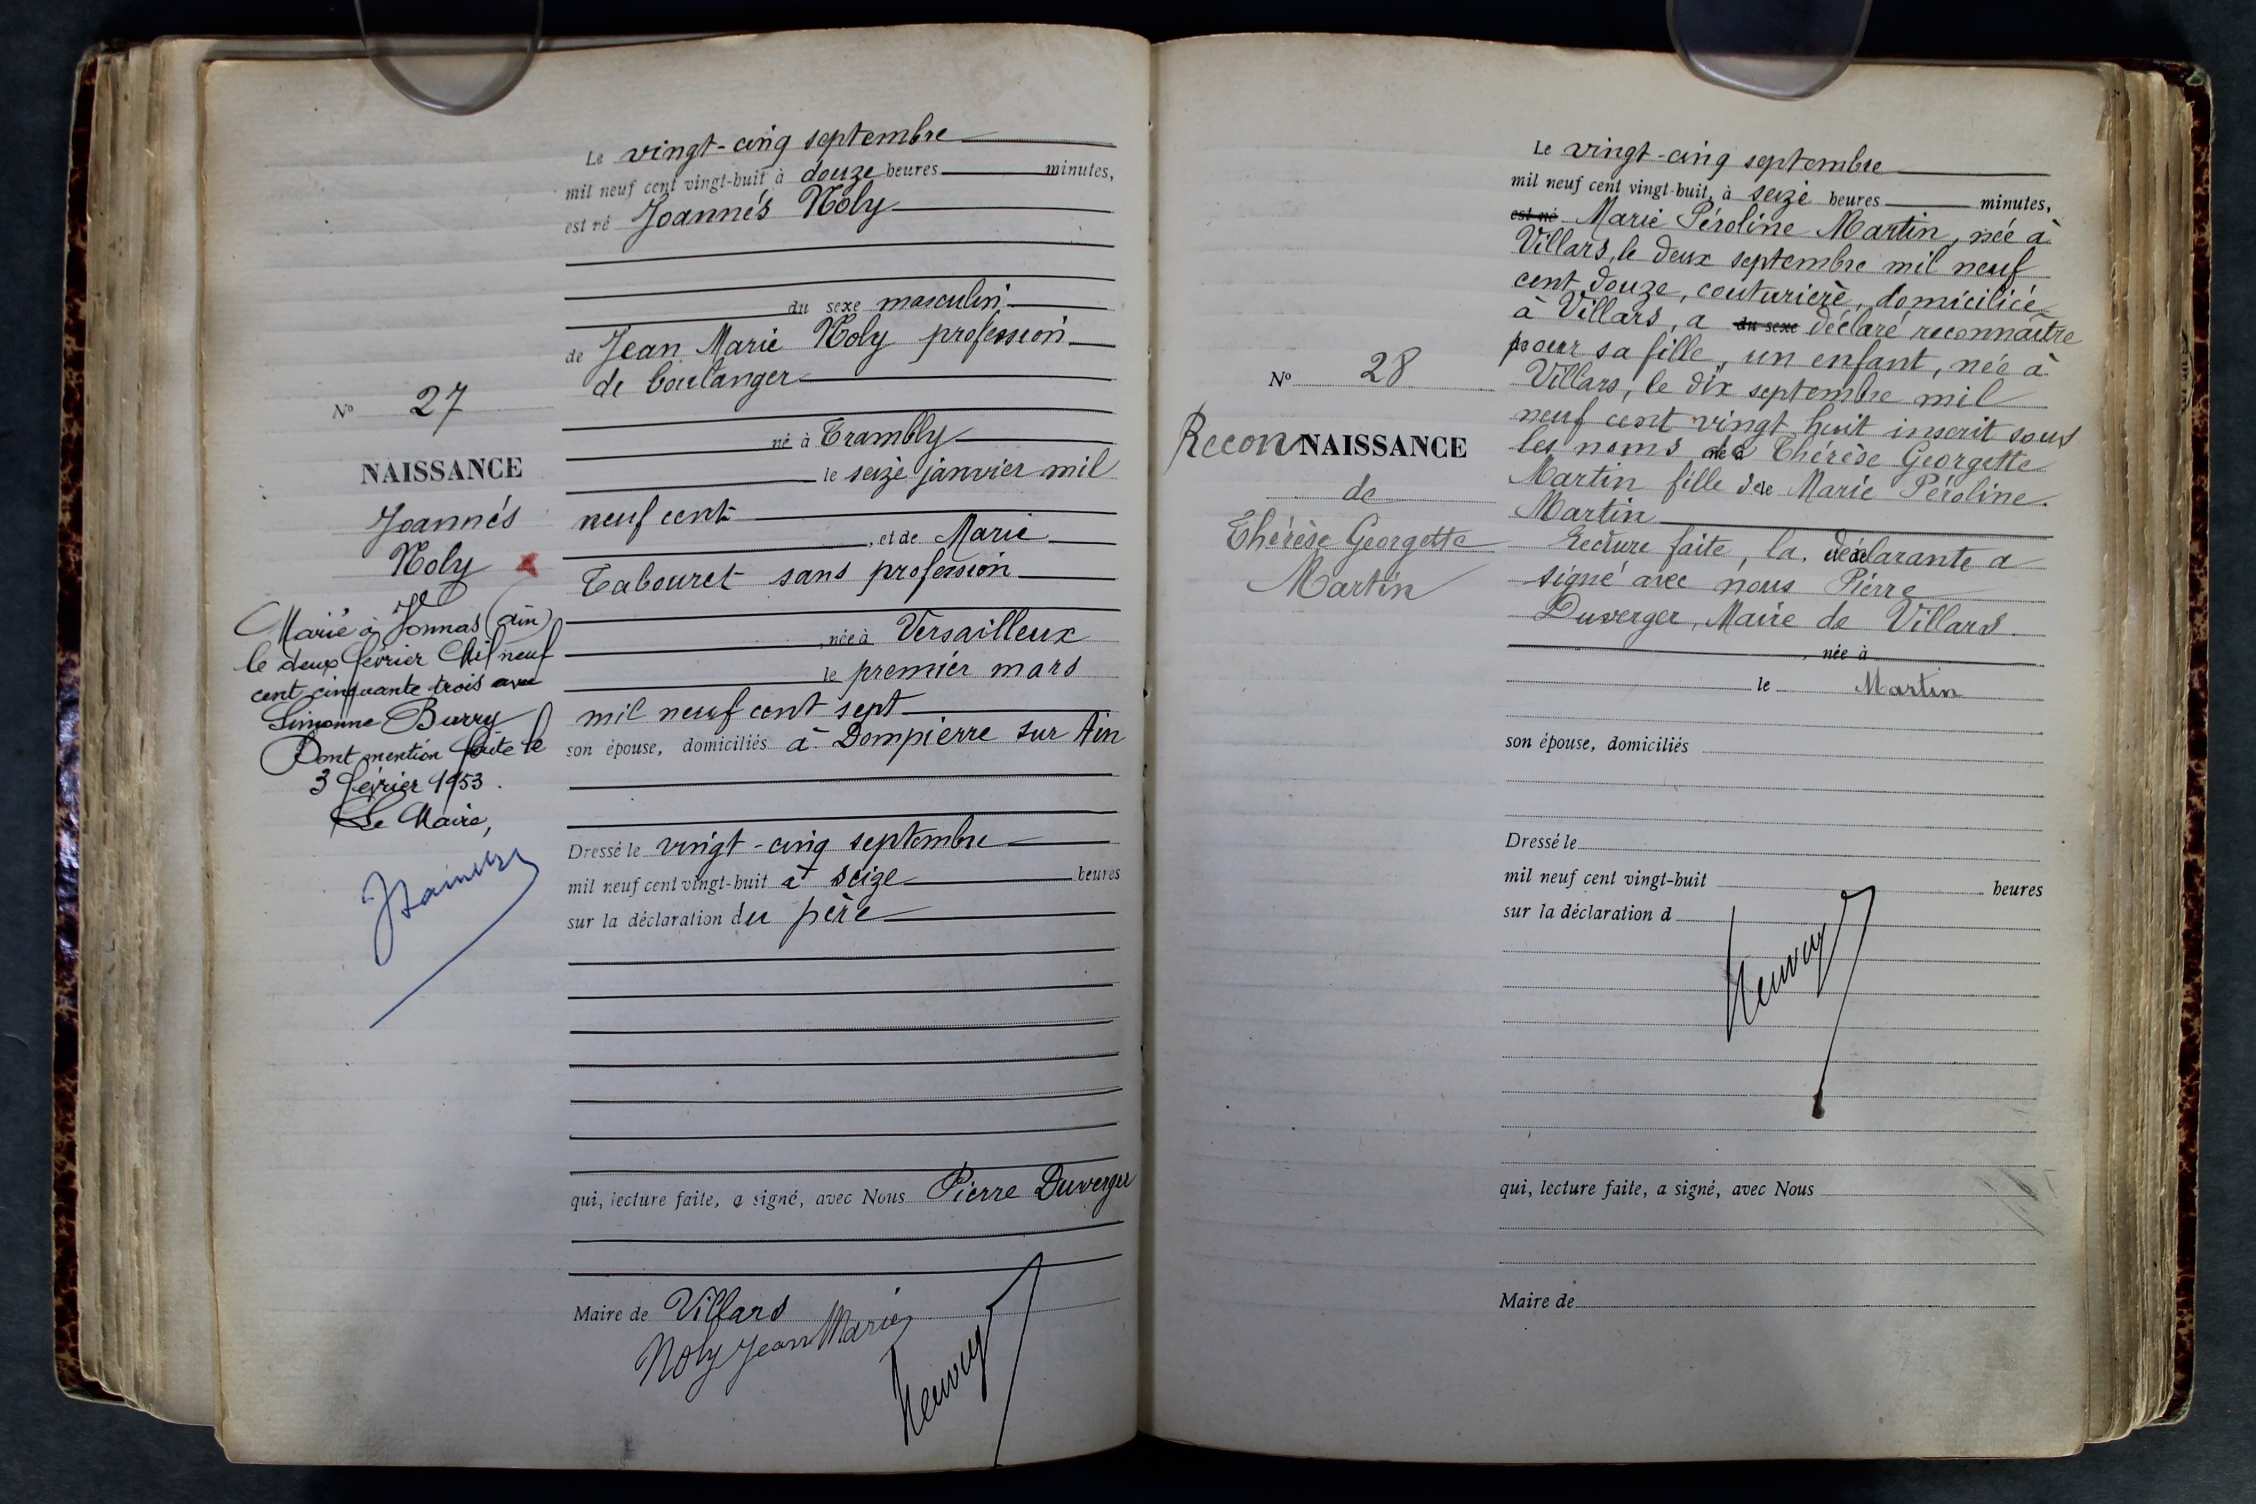 N° 27
NAISSANCE
Joannés
Noly
Marié à Jonnas (Ain)
le deux février Mil neuf
cent cinquante trois avec
Simonne Burry
Dont mention faite le
3 février 1953.
Le Maire,
Le vingt-cinq septembre
mil neuf cent vingt-huit à douze heures minutes,
est né Joannés Noly
du sexe masculin
de Jean Marie Noly profession
de boulanger
né à Trambly
le seize janvier mil
neuf cent
, et de Marie
Tabouret sans profession
, née à Versailleux
le premier mars
mil neuf cent sept
son épouse, domiciliés à Dompierre sur Ain
Dressé le vingt-cinq septembre
mil neuf cent vingt-huit à seize heures
sur la déclaration du père
qui, lecture faite, a signé, avec Nous Pierre Duverger
Maire de Villars
Noly Jean Marie
N° 28
ReconNAISSANCE
de
Thérèse Georgette
Martin
Le vingt-cinq septembre
mil neuf cent vingt-huit, à seize heures minutes,
est né Marie Péroline Martin, née à
Villars, le deux septembre mil neuf
cent douze, couturière, domiciliée
à Villars, a du sexe déclaré reconnaître
pour sa fille, un enfant, née à
Villars, le dix septembre mil
neuf cent vingt huit inscrit sous
les noms de Thérèse Georgette
Martin fille de Marie Péroline
Martin
Lecture faite, la déclarante a
signé avec nous Pierre
Duverger, Maire de Villars.
, née à
le Martin
son épouse, domiciliés
Dressé le
mil neuf cent vingt-huit heures
sur la déclaration d
qui, lecture faite, a signé, avec Nous
Maire de